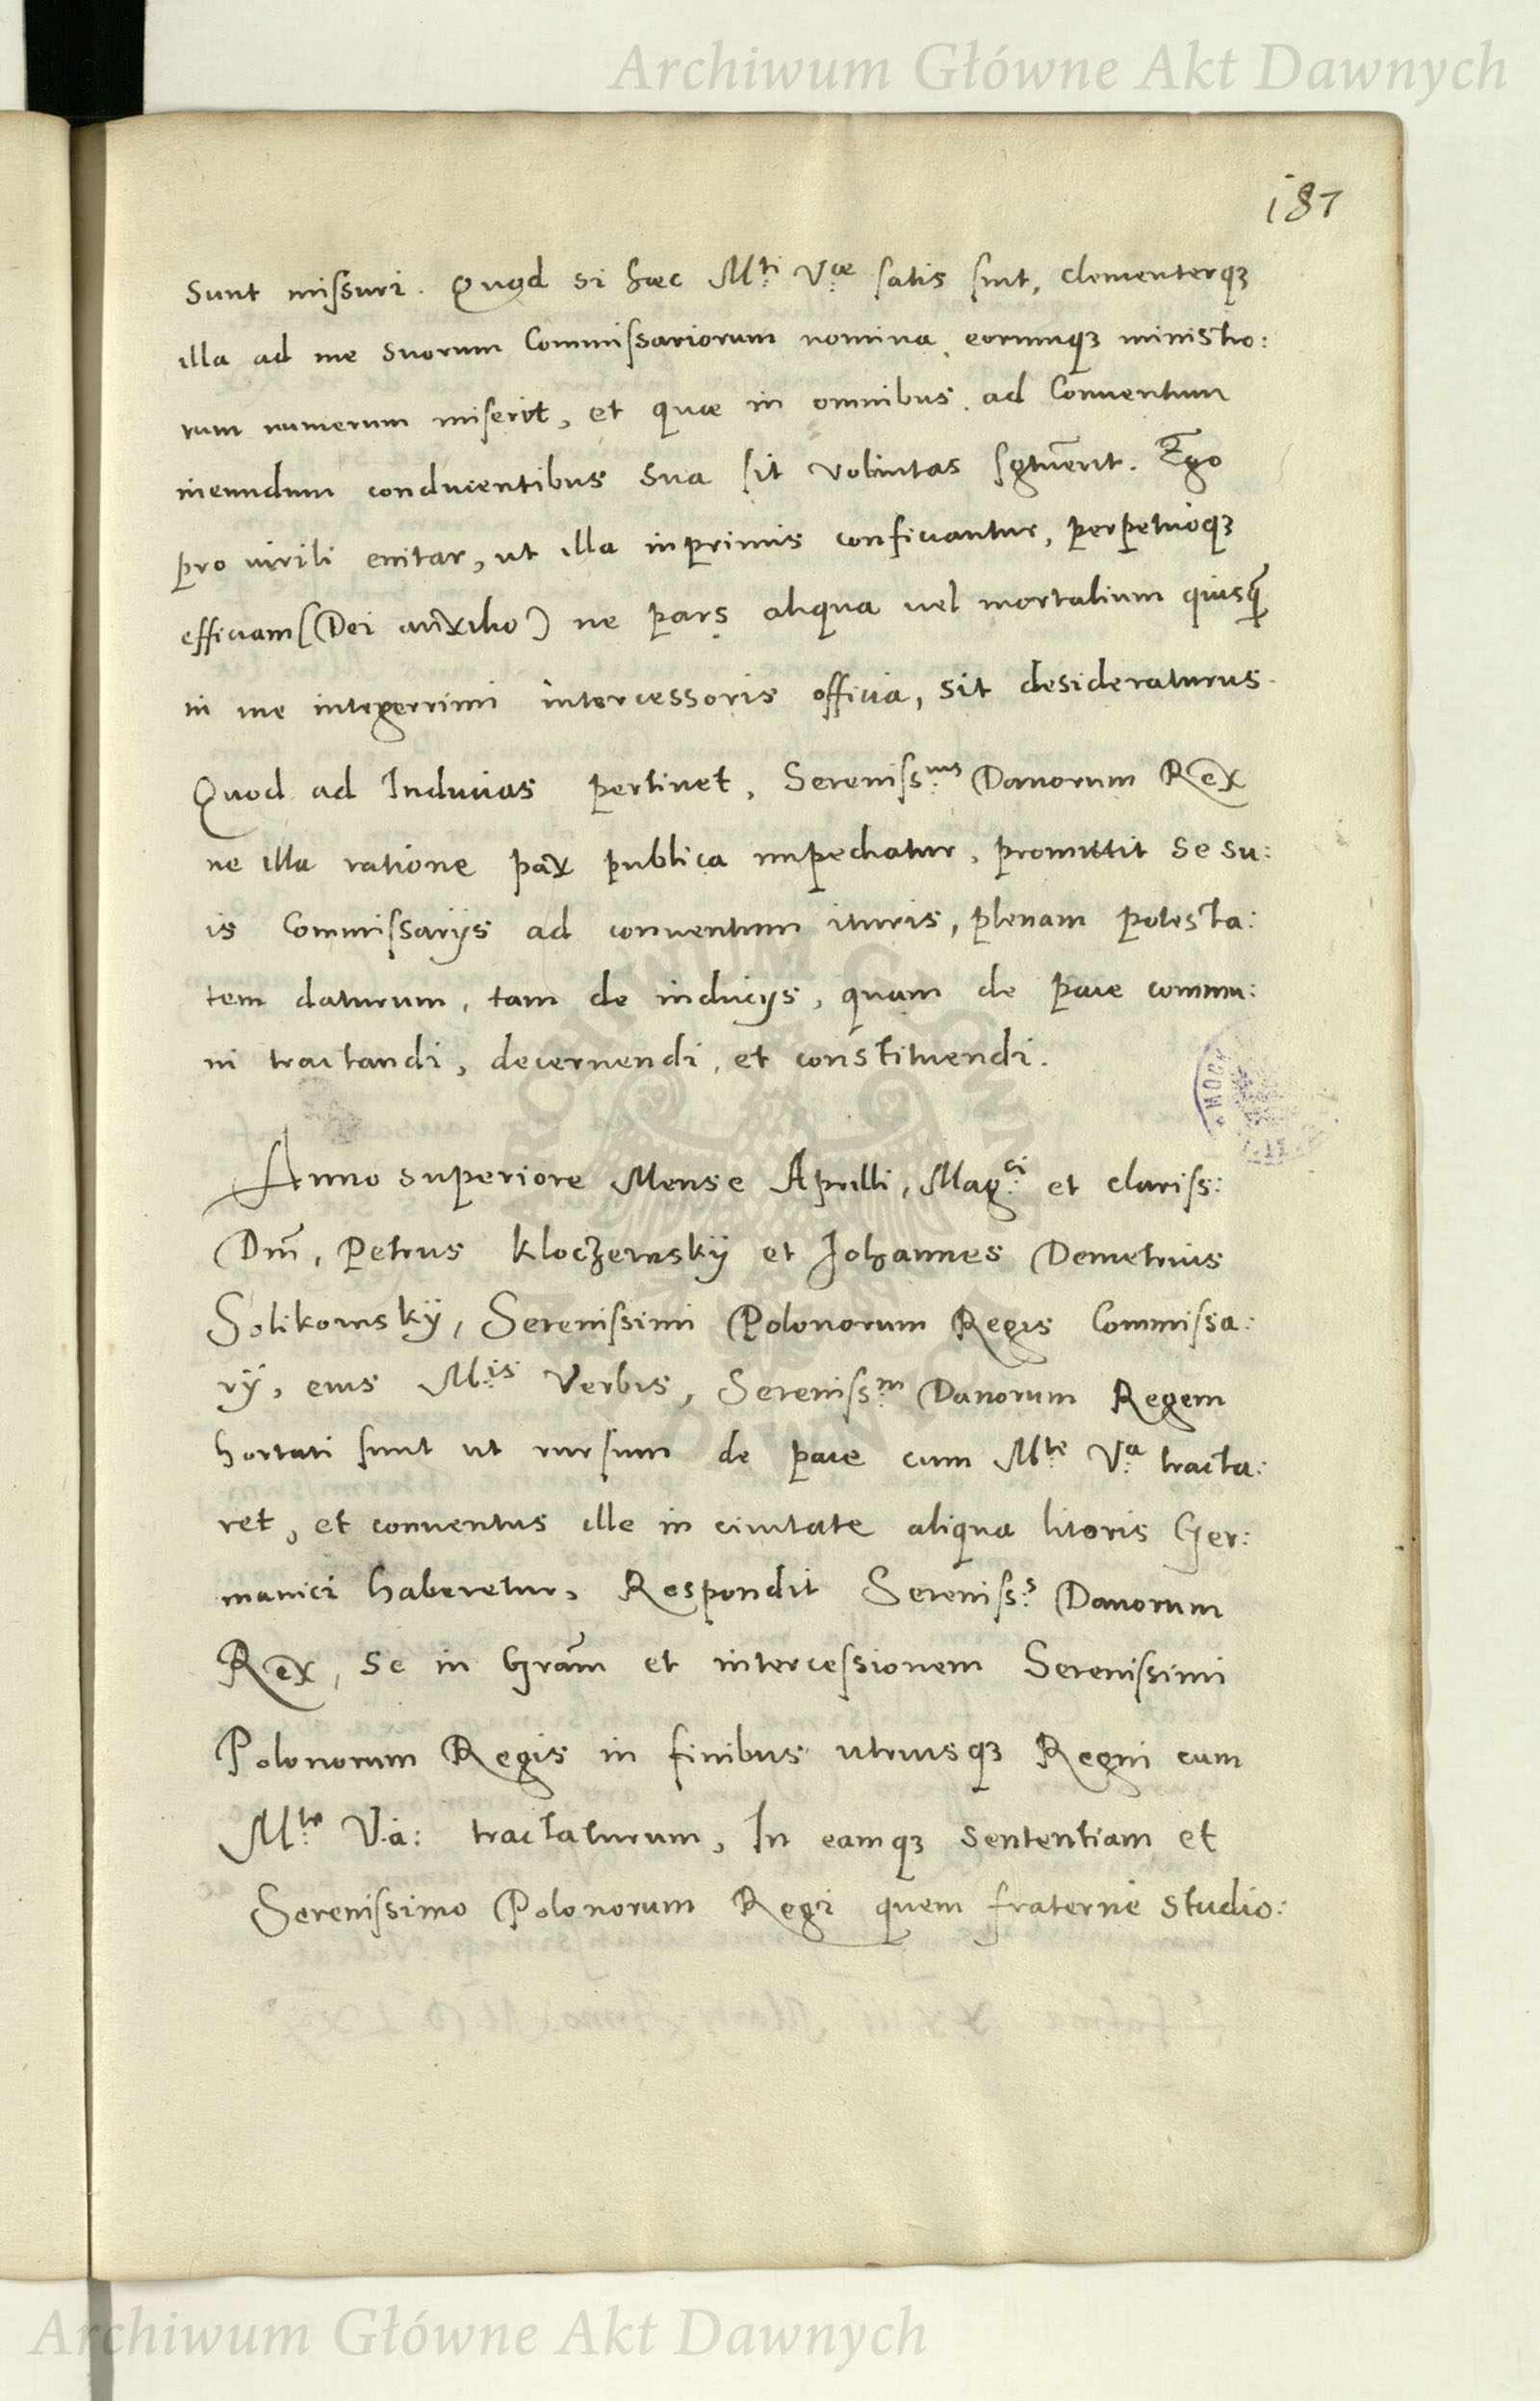 Archiwum Główne Akt Dawnych
187
sunt missuri. Quod si haec M:ti V:ae satis sint, clementerq3
illa ad me suorum Commissariorum nomina, eorumq3 ministro:
rum numerum miserit, et quae in omnibus ad Conuentum
ineundum conducentibus sua sit voluntas . Ego
pro virili enitar, ut illa inprimis conficiantur, perpetuoq3
efficiam (Dei auxilio) ne pars aliqua vel mortalium quisq̃
in me integerrimi intercessoris officia, sit desideraturus.
Quod ad Inducias pertinet, Sereniss:mus Danorum Rex
ne illa ratione pax publica impediatur, promittit se su:
is Commissarijs ad conuentum ituris, plenam potesta:
tem daturum, tam de inducijs, quam de pace commu:
ni tractandi, decernendi, et constituendi.
Anno superiore Mense Aprilli, Mag:ci et clariss:
Dm̃, Petrus Kloczewskÿ et Johannes Demetrius
Solikowskÿ, Serenissimi Polonorum Regis Commissa:
rÿ, eius M:is Verbis, Sereniss:m Danorum Regem
hortati sunt ut rursum de pace cum M:te V:a tracta:
ret, et conuentus ille in ciuitate aliqua litoris Ger:
manici haberetur, Respondit Sereniss:s Danorum
Rex, se in Gram̃ et intercessionem Serenissimi
Polonorum Regis in finibus utriusq3 Regni cum
M:te V.a: tractaturum, In eamq3 sententiam et
Serenissimo Polonorum Regi quem fraterne studio:
Archiwum Główne Akt Dawnych